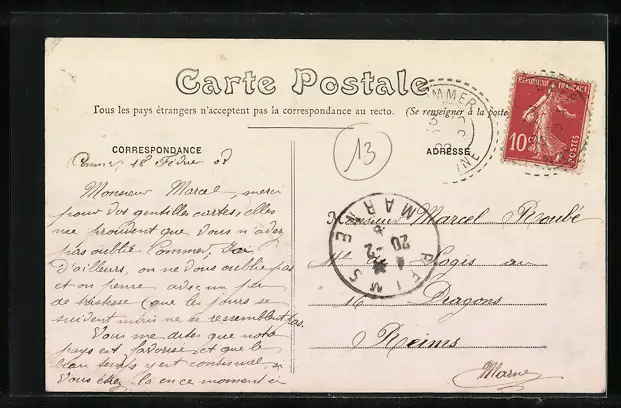 Carte Postale
Tous les pays étrangers n'acceptent pas la correspondance au recto. (Se renseigner à la poste
CORRESPONDANCE
ADRESSE
13
RÉPUBLIQUE FRANÇAISE
10c
POSTES
REIMS
MARNE
20 -2
18 Février 08
Monsieur Marcel, merci
pour vos gentilles cartes, elles
me prouvent que vous n'avez
pas oublié Commercy, J'ai
d'ailleurs, on ne vous oublie pas
et on pense avec un peu
de tristesse que les jours se
suivent mais ne se ressemblent pas.
Vous me dites que notre
pays est favorisé, et que le
beau temps y est continuel
Vous étiez là en ce moment ci
Monsieur Marcel Roubé
Mal des Logis au
16 Dragons
Reims
Marne